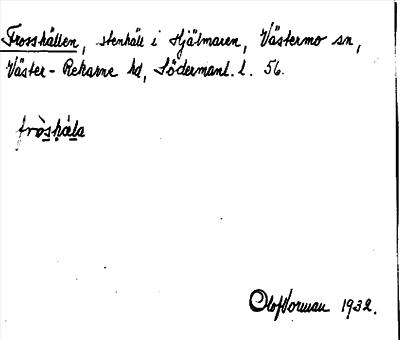 Frosshällen, stenhäll i Hjälmaren, Västermo sn,
Väster-Rekarne hd, Södermanl. l. 56.
fròshála
Olof Vorman 1932.